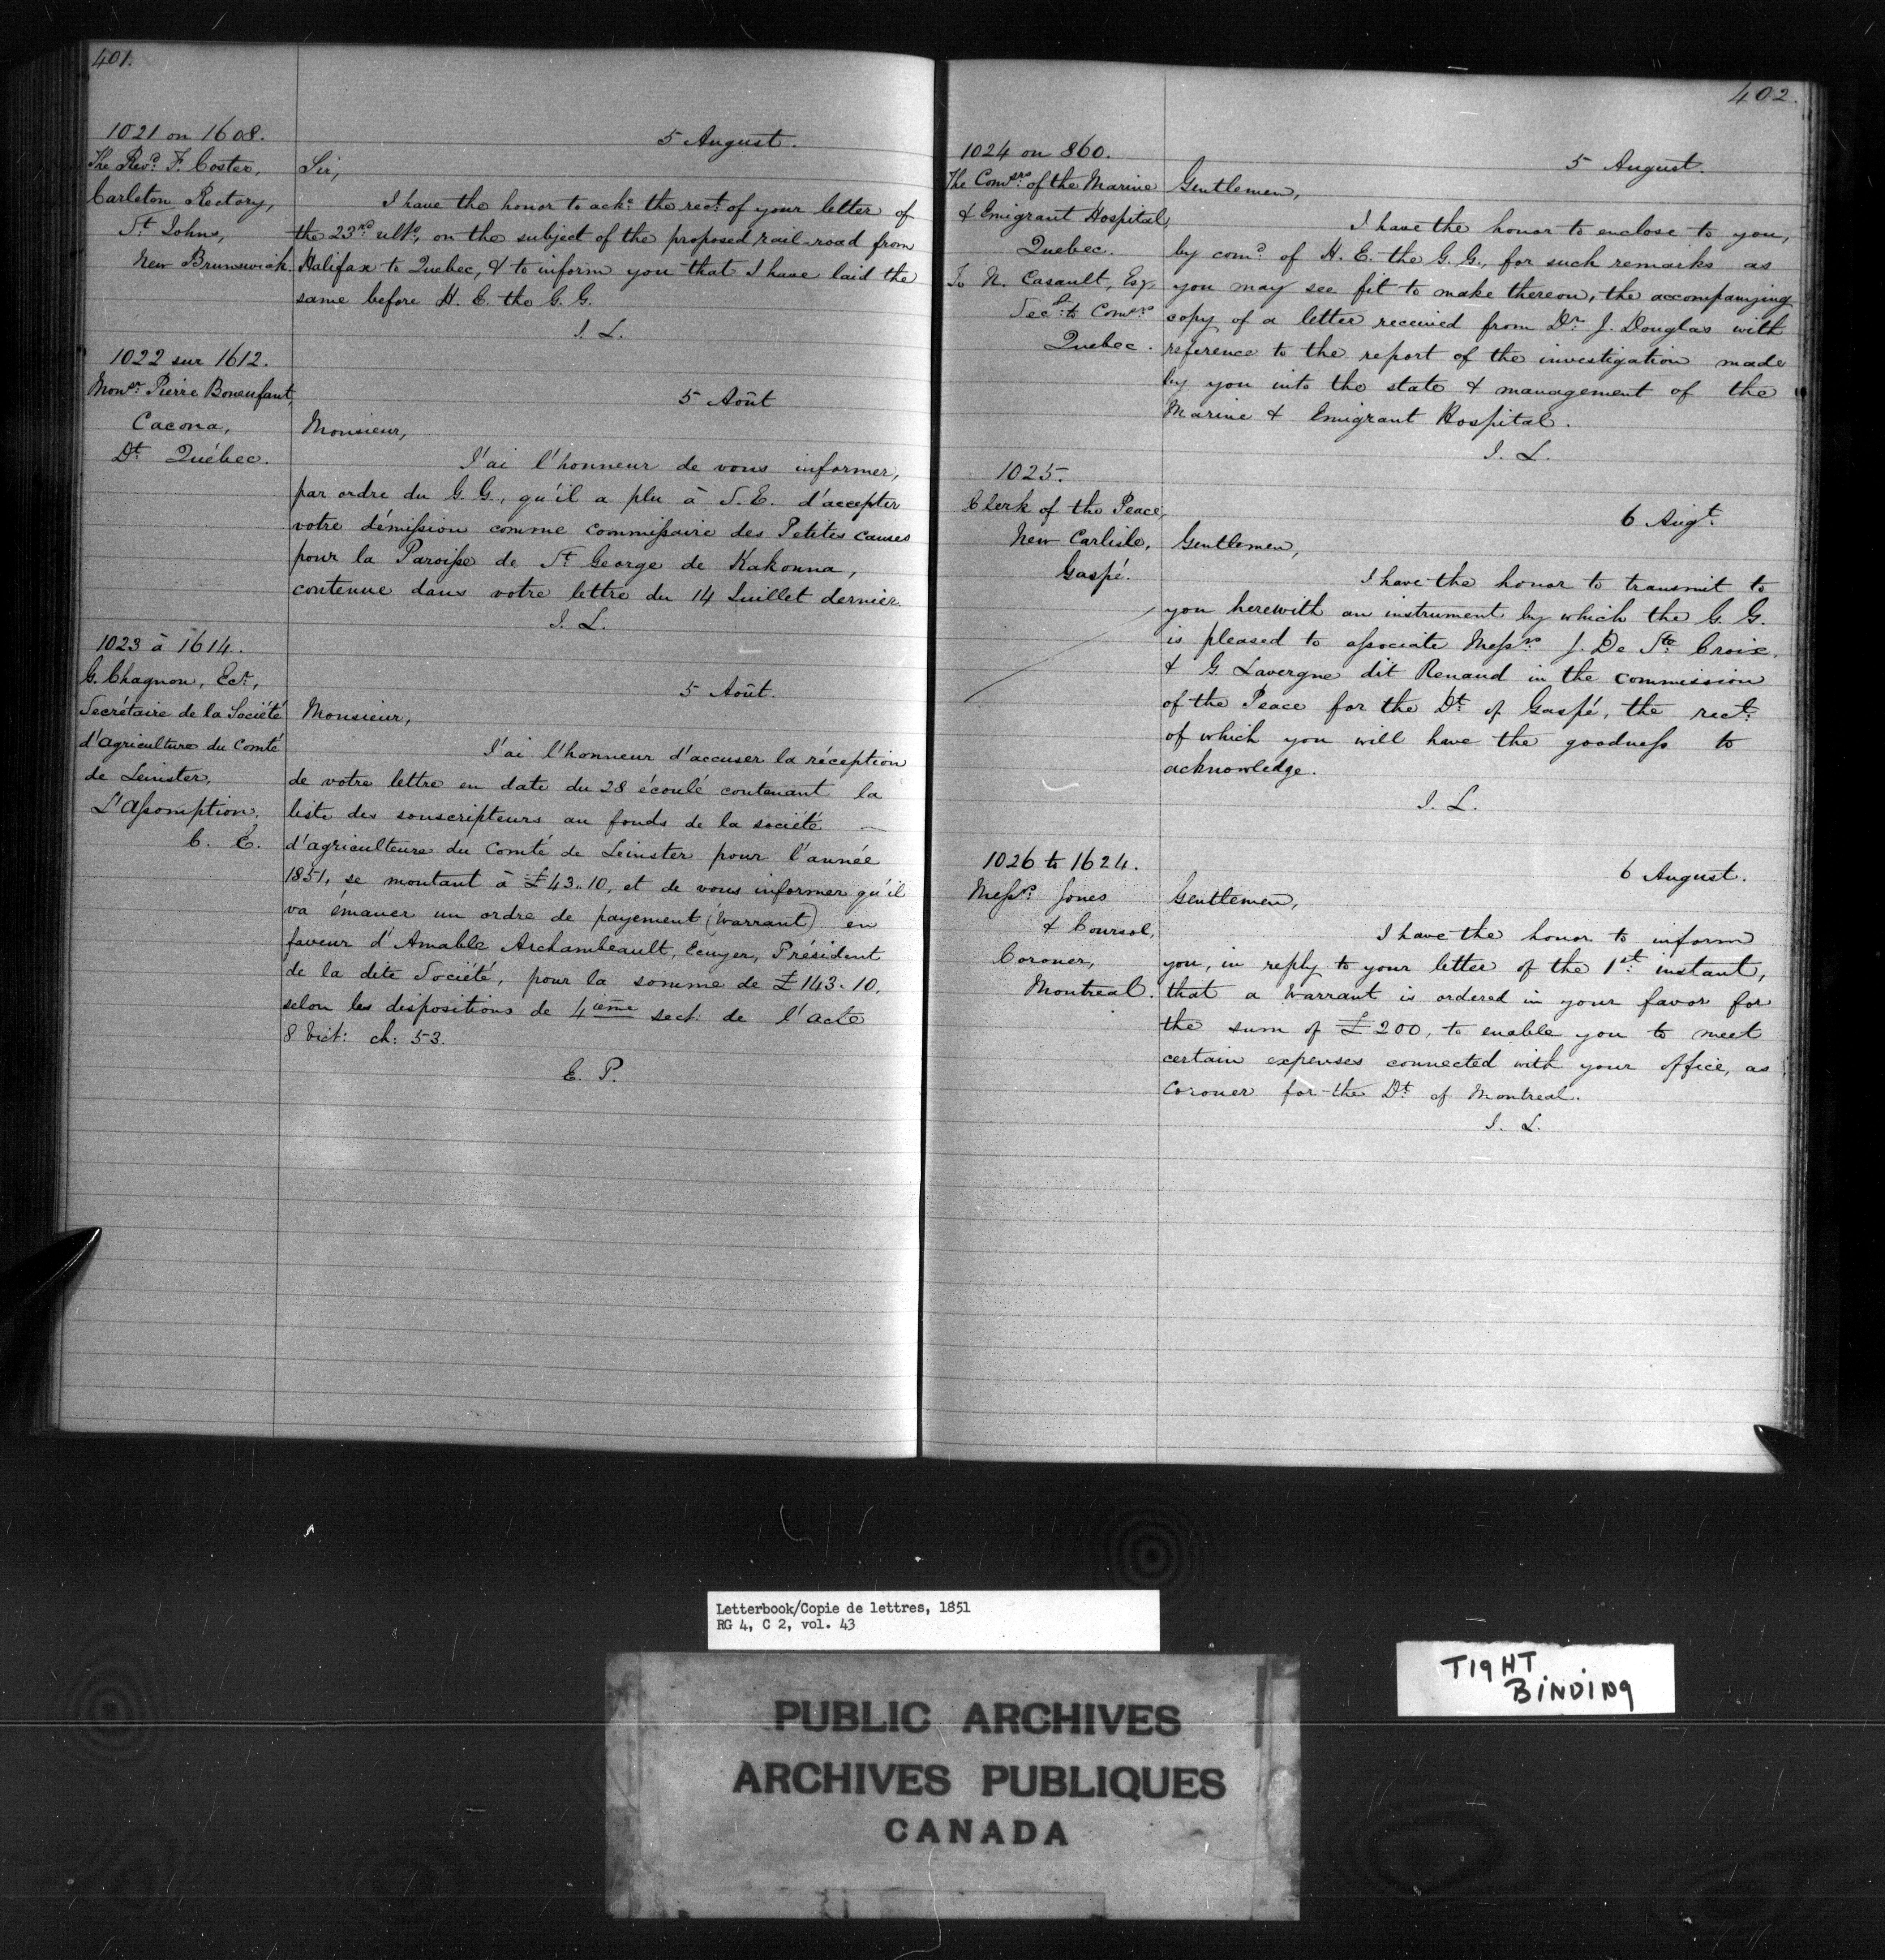 401.
1021 on 1608.
The Revd. F. Coster,
Carleton Rectory,
St. Johns,
New Brunswick
5 August.
Sir,
I have the honor to ackc. the rect. of your letter of
the 23rd ulto., on the subject of the proposed rail-road from
Halifax to Quebec, & to inform you that I have laid the
same before H. E. the G. G.
J. L.
1022 sur 1612.
Monsr. Pierre Bonenfant,
Cacona,
Dt. Québec.
5 Août
Monsieur,
J'ai l'honneur de vous informer,
par ordre du G. G., qu'il a plu à S. E. d'accepter
votre démission comme Commissaire des Petites Causes
pour la Paroisse de St. George de Kakouna,
contenue dans votre lettre du 14 Juillet dernier.
J. L.
1023 à 1614.
G. Chagnon, Ecr.,
Secrétaire de la Société
d'Agriculture du Comté
de Leinster,
L'Assomption,
C. E.
5 Août.
Monsieur,
J'ai l'honneur d'accuser la réception
de votre lettre en date du 28 écoulé contenant la
liste des souscripteurs au fonds de la société
d'agriculture du Comté de Leinster pour l'année
1851, se montant à £43.10, et de vous informer qu'il
va émaner un ordre de payement (Warrant) en
faveur d'Amable Archambeault, Ecuyer, Président
de la dite Société, pour la somme de £143.10,
selon les dispositions de 4ième sect: de l'acte
8 Vict: ch: 53.
E. P.
402.
1024 on 860.
The Comsrs. of the Marine
& Emigrant Hospital,
Quebec.
To N. Casault, Esqr.
Secy. to Comsrs
Quebec.
5 August.
Gentlemen,
I have the honor to enclose to you,
by comd. of H. E. the G. G., for such remarks as
you may see fit to make thereon, the accompanying
copy of a letter received from Dr. J. Douglas with
reference to the report of the investigation made
by you into the state & management of the
Marine & Emigrant Hospital.
J. L.
1025.
Clerk of the Peace,
New Carlisle,
Gaspé.
6 Augt.
Gentlemen,
I have the honor to transmit to
you herewith an instrument by which the G. G.
is pleased to associate Messrs. J. De Ste Croix,
& G. Lavergne dit Renaud in the commission
of the Peace for the Dt. of Gaspé, the rect.
of which you will have the goodness to
acknowledge.
J. L.
1026 to 1624.
Messrs. Jones
& Coursol,
Coroner,
Montreal.
6 August.
Gentlemen,
I have the honor to inform
you, in reply to your letter of the 1st. instant,
that a Warrant is ordered in your favor for
the sum of £200, to enable you to meet
certain expenses connected with your office, as
Coroner for the Dt. of Montreal.
J. L.
Letterbook/Copie de lettres, 1851
RG 4, C 2, vol. 43
TIGHT
BINDING
PUBLIC ARCHIVES
ARCHIVES PUBLIQUES
CANADA